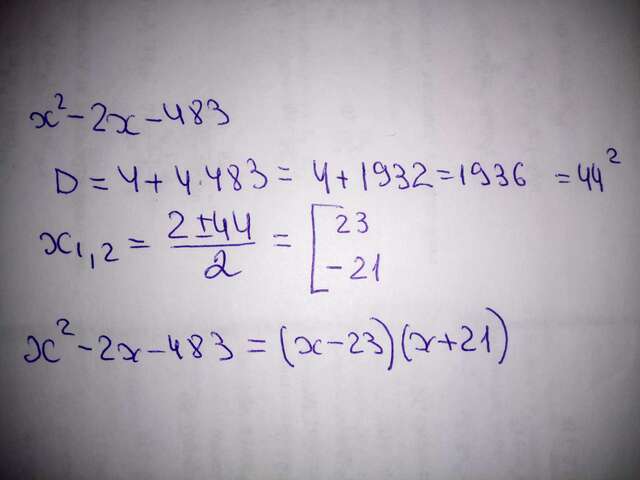 x² - 2x - 483
D = 4 + 4·483 = 4 + 1932 = 1936 = 44²
x₁,₂ = (2 ± 44)/2 = [23
-21
x² - 2x - 483 = (x - 23)(x + 21)